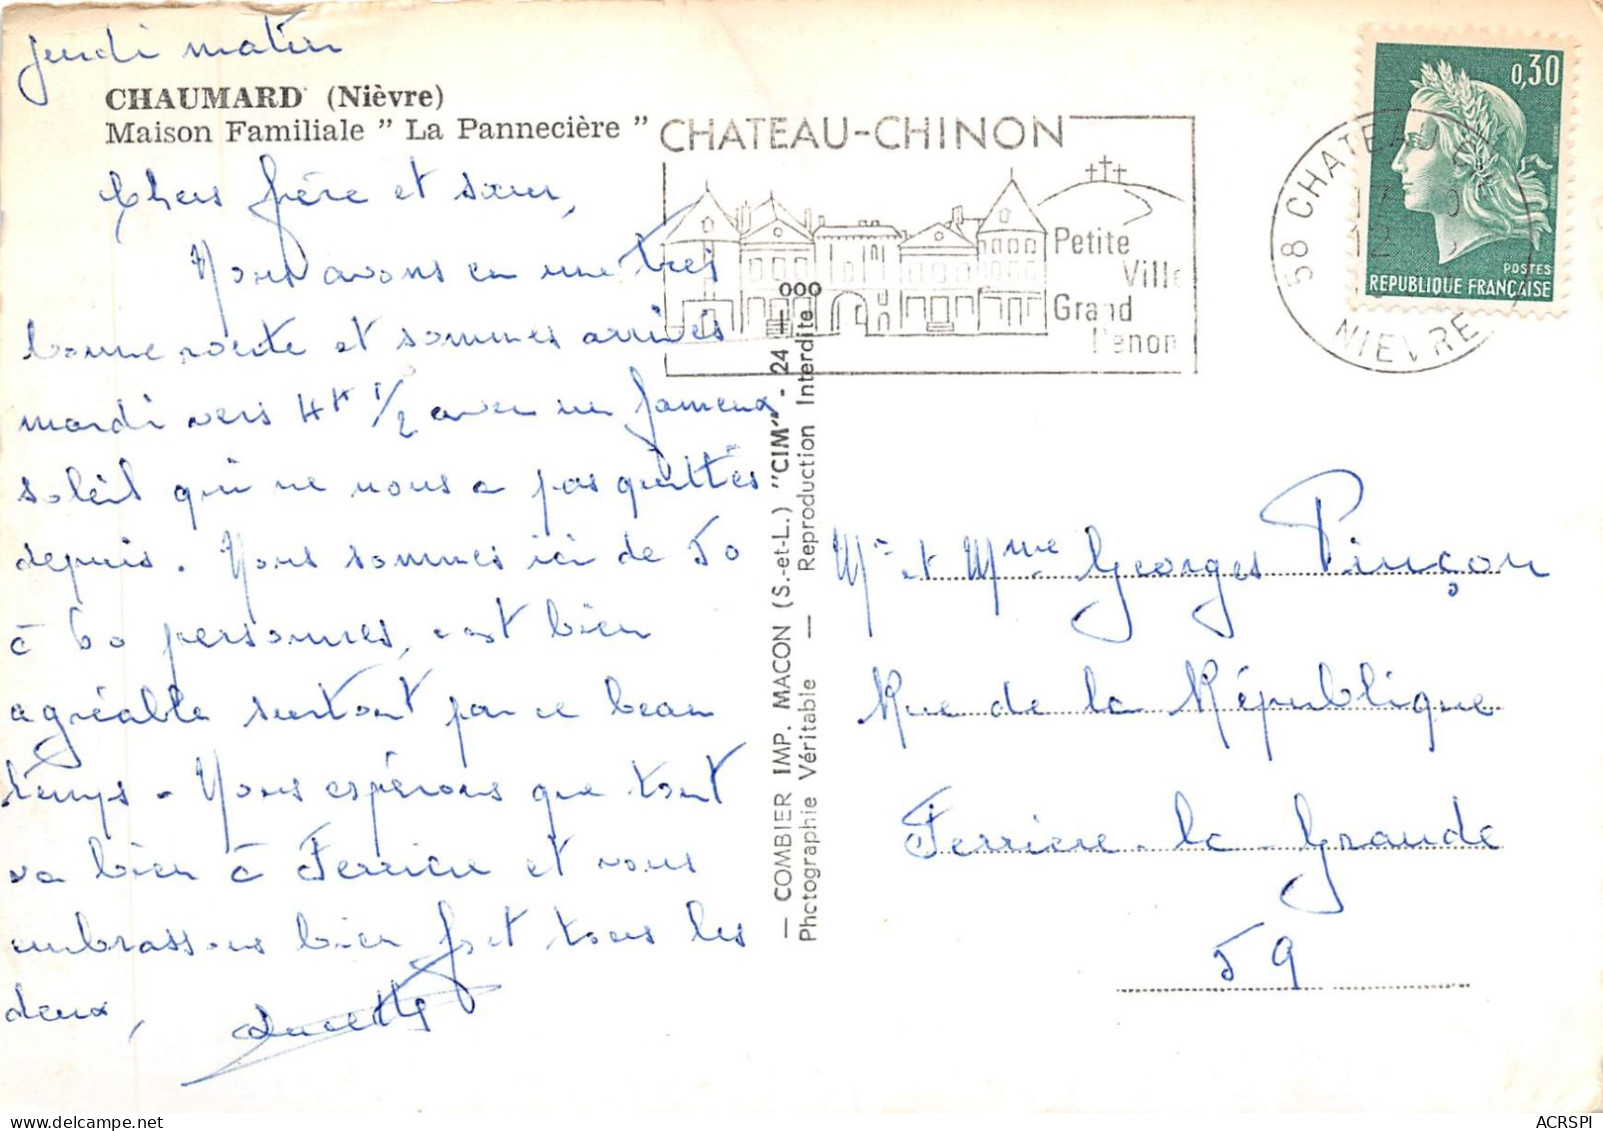 jeudi matin
CHAUMARD (Nièvre)
Maison Familiale " La Pannecière "
Chers frère et sœur,
Nous avons eu une très
bonne route et sommes arrivés
mardi vers 4h 1/2 avec un fameux
soleil qui ne nous a pas quittés
depuis. Nous sommes ici de 50
à 60 personnes, c'est bien
agréable surtout par ce beau
temps - Nous espérons que tout
va bien à Ferrière et vous
embrassons bien fort tous les
deux,
CHATEAU-CHINON
Petite
Ville
Grand
Renom
58 CHATEAU
NIEVRE
0,30
POSTES
REPUBLIQUE FRANÇAISE
— COMBIER IMP. MACON (S.-et-L.) "CIM" - 24
Photographie Véritable — Reproduction Interdite
Mr et Mme Georges Pinçon
Rue de la République
Ferrière-la-Grande
59
www.delcampe.net
ACRSPI